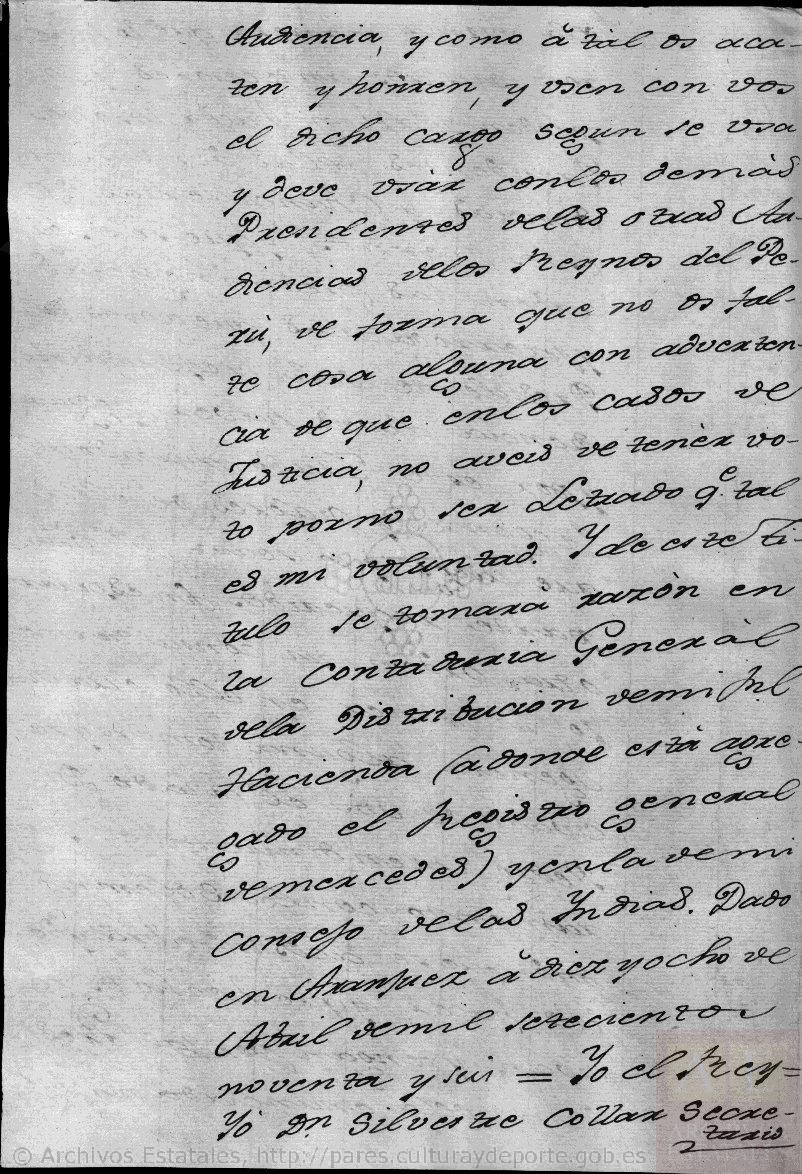 Audiencia, y como à tàl os aca-
ten y honren, y usen con vos
el dicho cargo segun se usa
y deve usàr conlos demàs
Presidentes delas otras Au-
diencias delos Reynos del Pe-
rù, de forma que no os fal-
te cosa alguna con adverten-
cia de que enlos casos de
Justicia, no aveis de tenèr vo-
to porno ser Letrado q.e tal
es mi voluntad. Y de este Ti-
tulo se tomara razòn en
la Contaduria Generàl
dela Distribuciòn demi Rl
Hacienda (adonde està agre-
gado el Registro general
demercedes) yenla demi
Consejo delas Yndias. Dado
en Aranjuez à diez yocho de
Abril demil setecientos
noventa y seis = Yo el Rey =
Yò Dn Silvestre Collar Secre-
tario
© Archivos Estatales, http://pares.culturaydeporte.gob.es